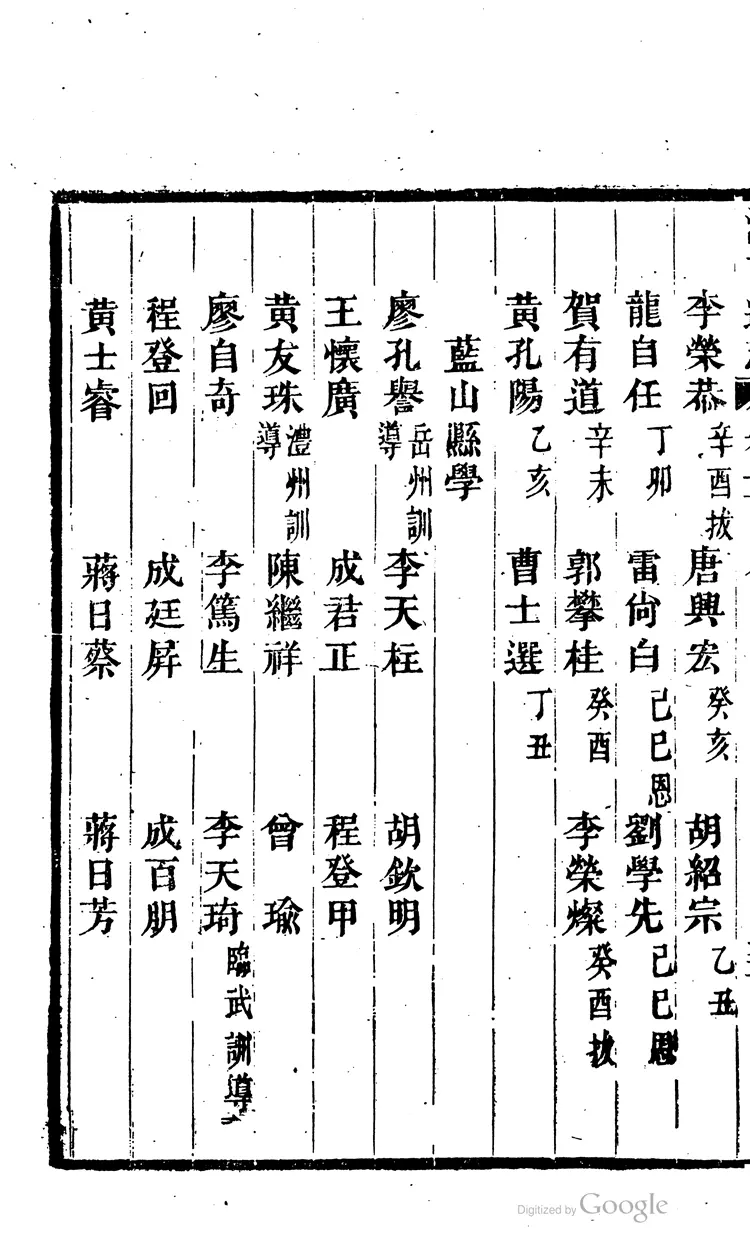 李榮恭辛酉拔 唐興宏癸亥 胡紹宗乙丑
龍自任丁卯 雷尙白己巳恩 劉學先己巳恩
賀有道辛未 郭攀桂癸酉 李榮燦癸酉拔
黃孔陽乙亥 曹士選丁丑
藍山縣學
廖孔譽岳州訓導 李天柱 胡欽明
王懷廣 成君正 程登甲
黃友珠澧州訓導 陳繼祥 曾瑜
廖自奇 李篤生 李天琦臨武訓導
程登回 成廷屛 成百朋
黃士睿 蔣日蔡 蔣日芳
Digitized by Google